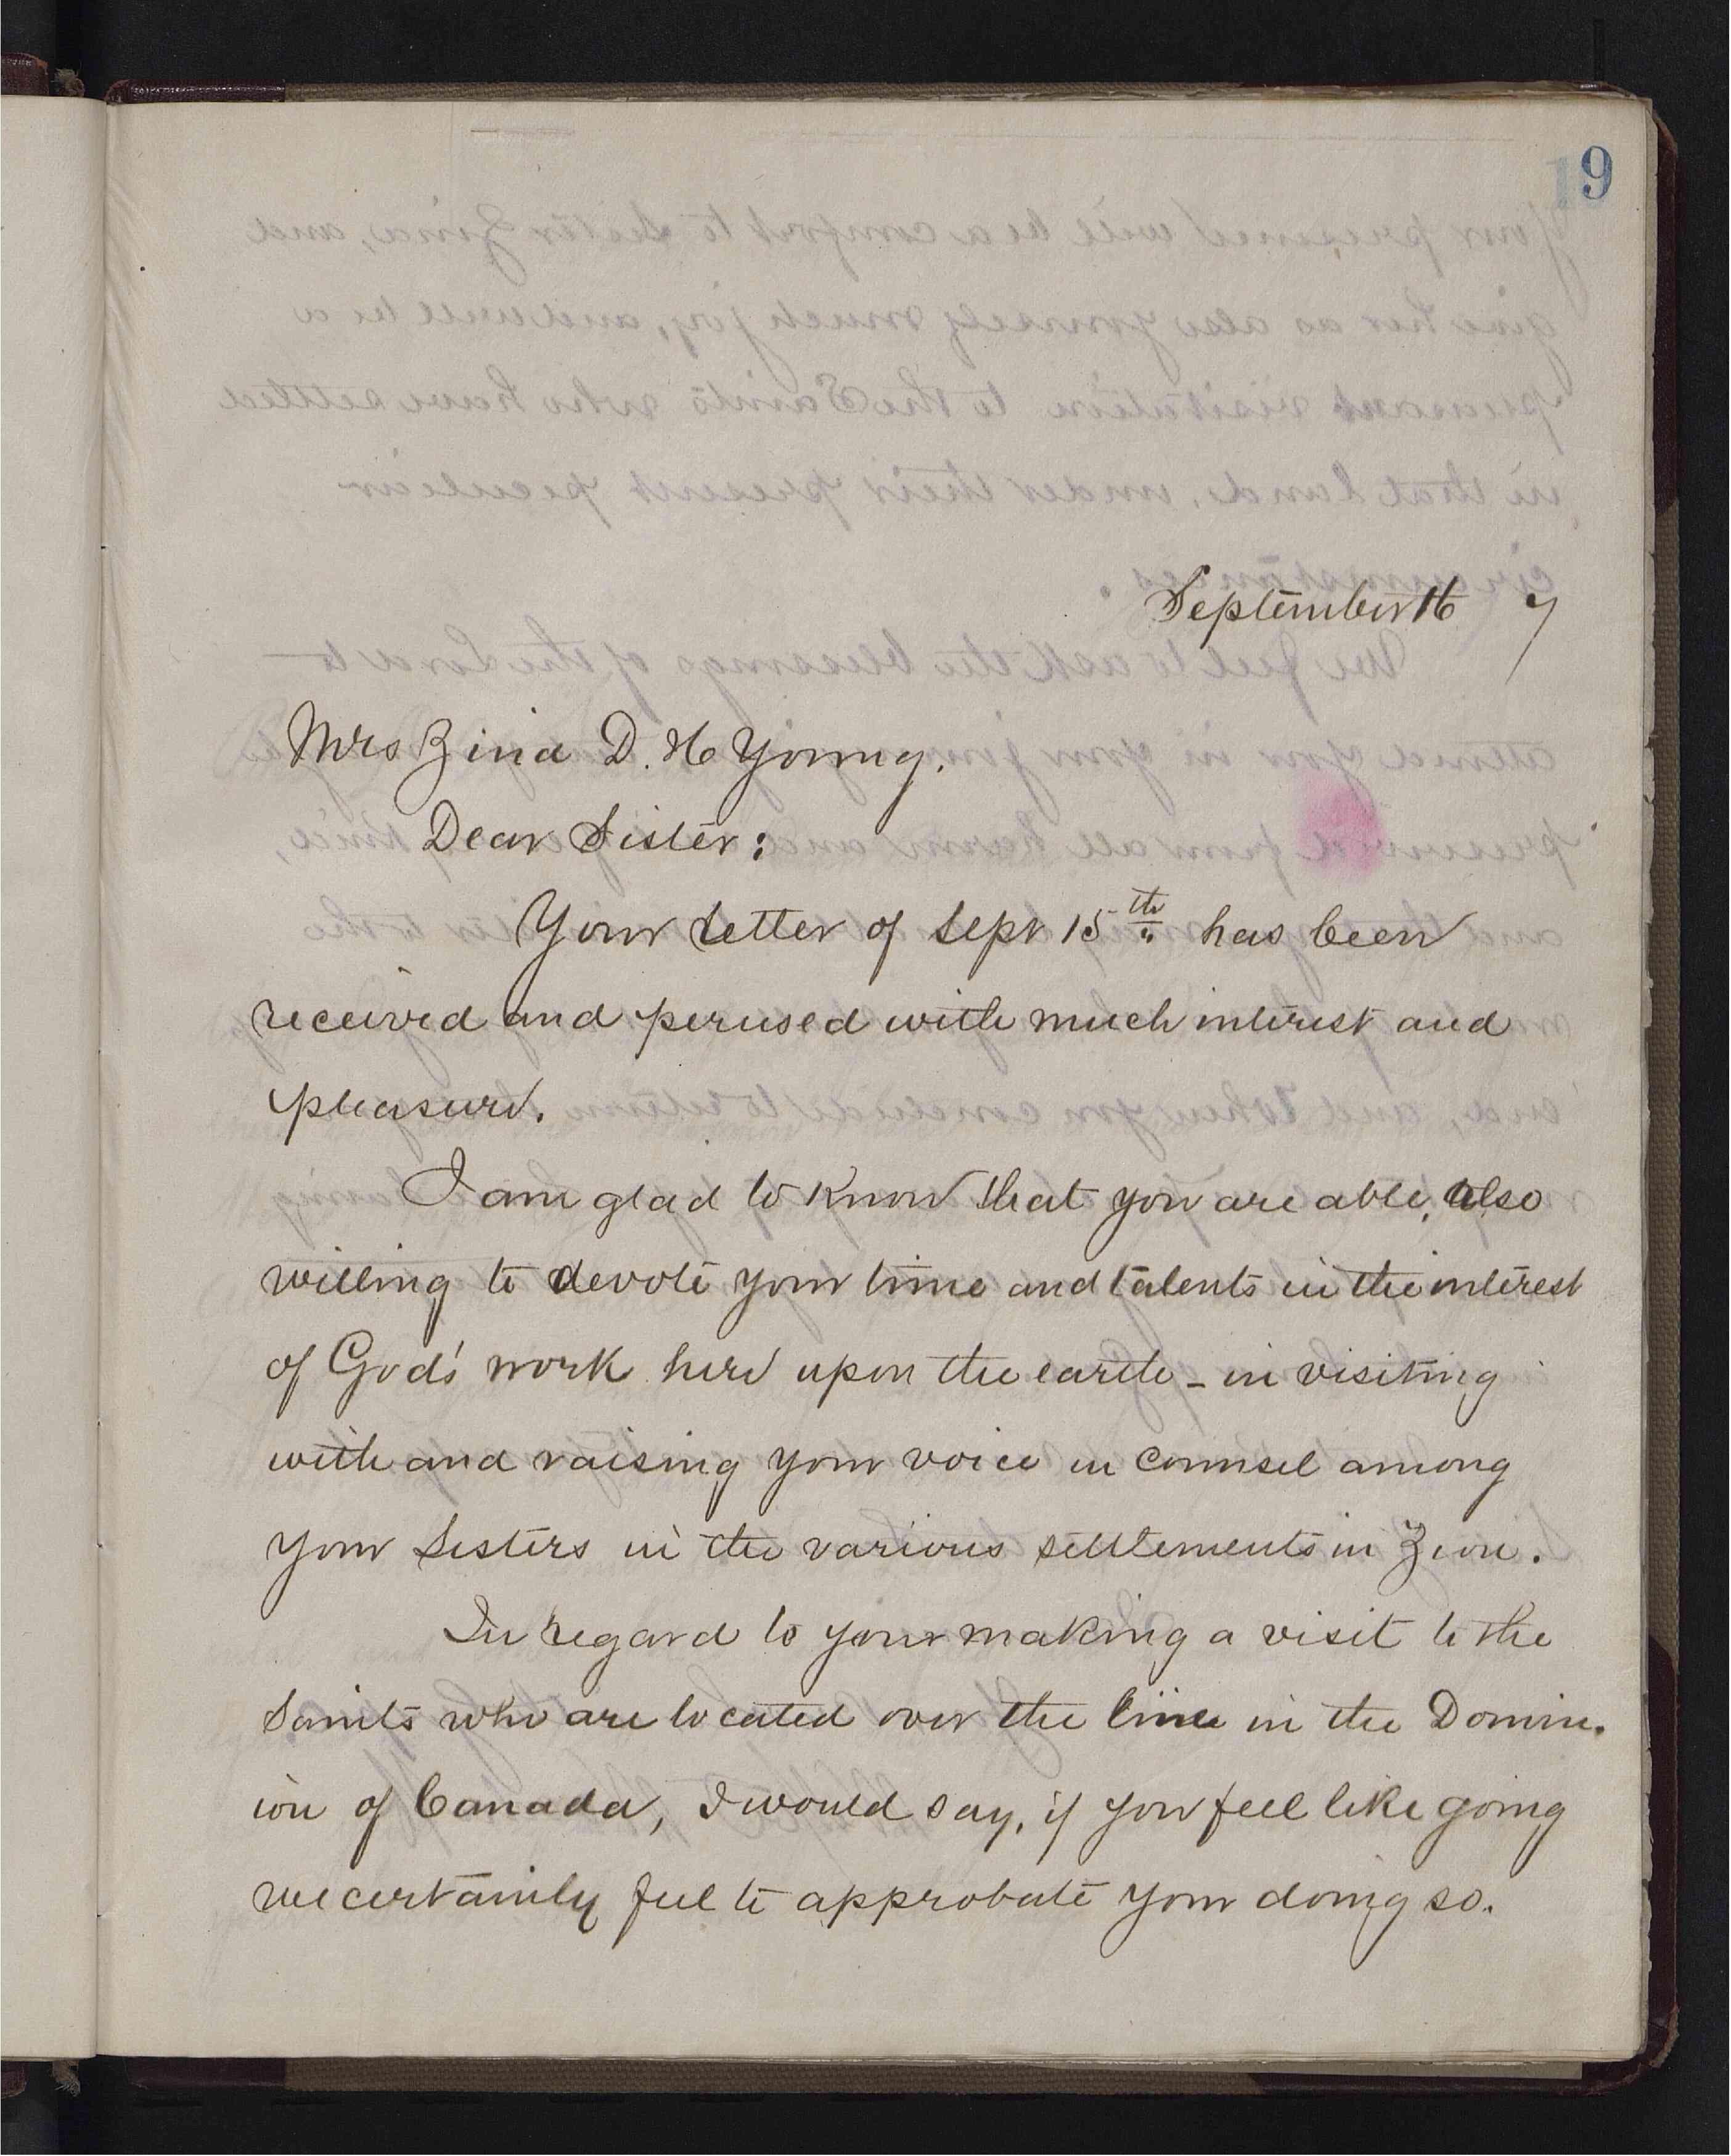 9
September 16 7
Mrs Zina D. H Young.
Dear Sister:
Your letter of Sept 15th has been
received and perused with much interest and
pleasure.
I am glad to know that you are able, also
willing to devote your time and talents in the interest
of God's work here upon the earth - in visiting
with and raising your voice in counsel among
your sisters in the various settlements in Zion.
In regard to your making a visit to the
Saints who are located over the line in the Domin-
ion of Canada, I would say, if you feel like going
we certainly feel to approbate your doing so.